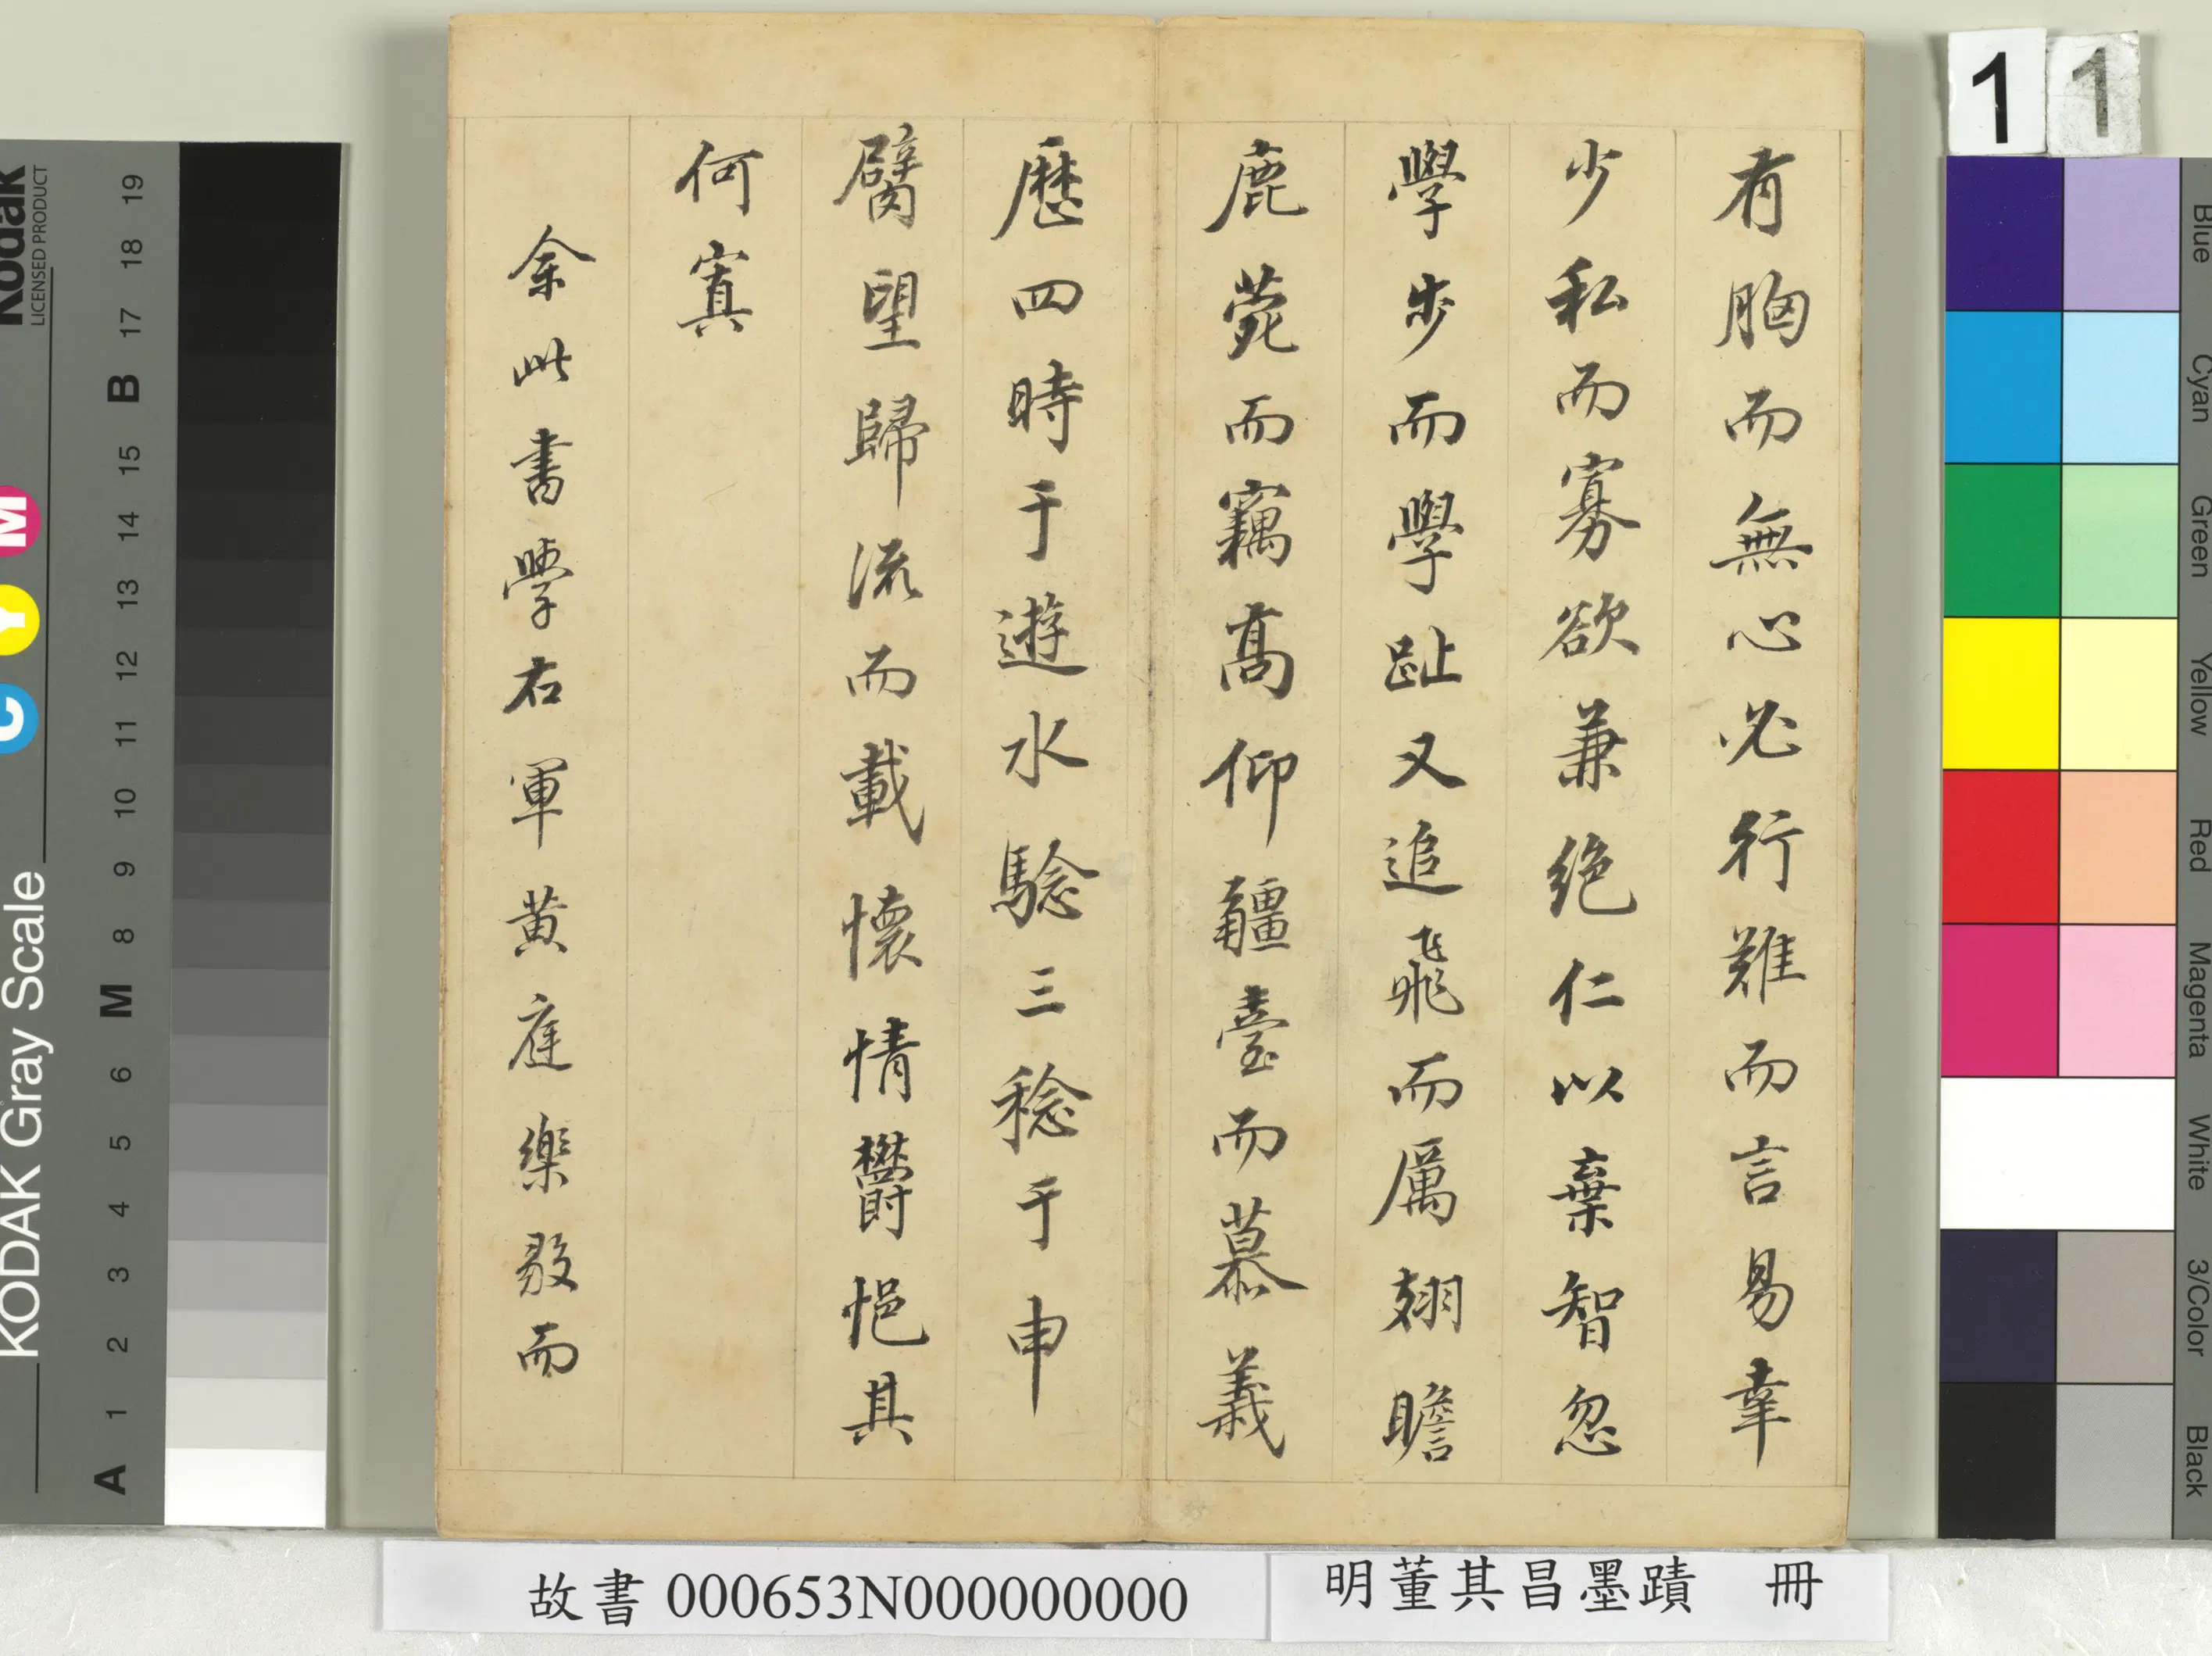 有胸而無心必行難而言易幸
少私而寡欲兼絕仁以棄智忽
學步而學趾又追飛而厲翅瞻
鹿菀而竊高仰疆臺而慕義
歷四時于遊水驗三稔于申
臂望歸流而載懷情欝悒其
何寘
余此書學右軍黃庭樂毅而
故書 000653N000000000
明董其昌墨蹟 冊
1
1
Kodak
LICENSED PRODUCT
KODAK Gray Scale
C Y M
A 1 2 3 4 5 6 M 8 9 10 11 12 13 14 15 B 17 18 19
Blue
Cyan
Green
Yellow
Red
Magenta
White
3/Color
Black